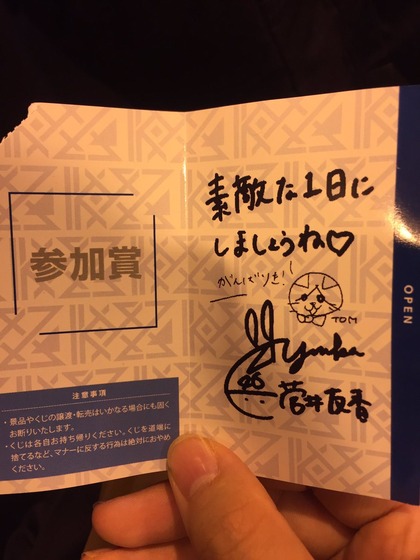 参加賞
注意事項
・景品やくじの譲渡・転売はいかなる場合にも固く
お断りいたします。
・くじは各自お持ち帰りください。くじを道端に
捨てるなど、マナーに反する行為は絶対におやめ
ください。
素敵な1日に
しましょうね♡
TOM
yuuka
菅井友香
OPEN